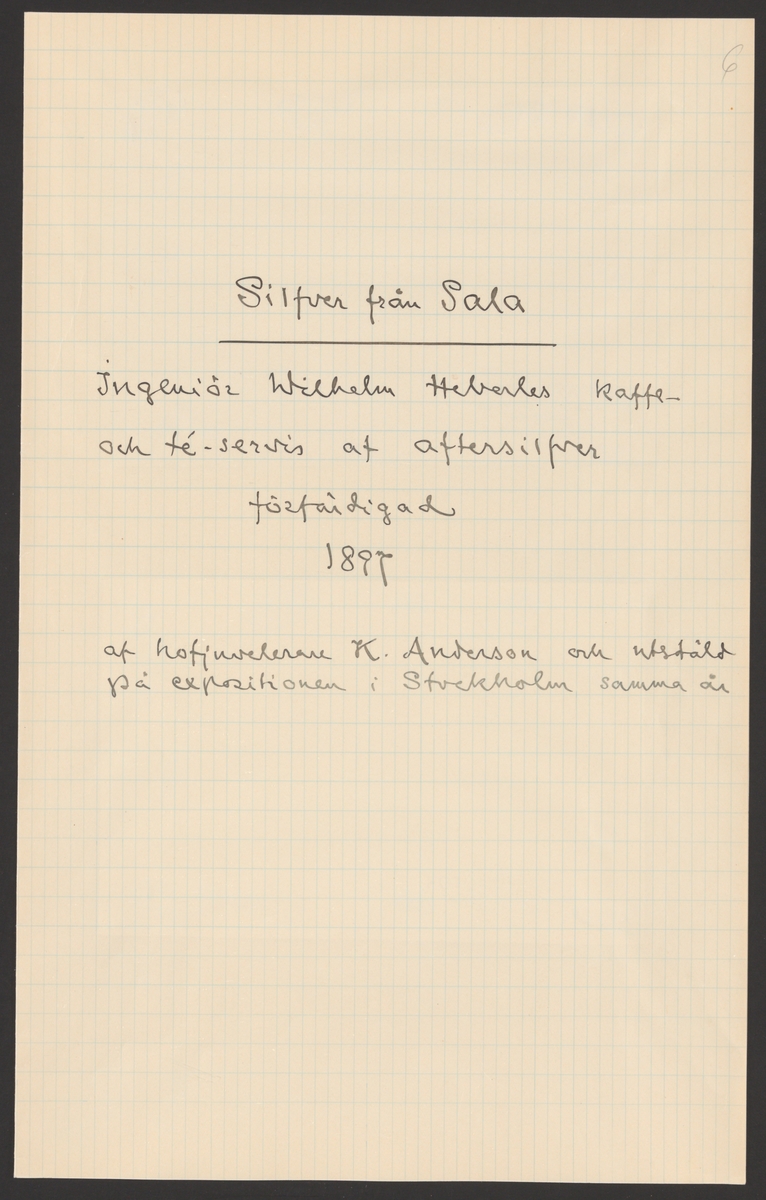 6
Silfver från Sala
Ingeniör Wilhelm Heberles kaffe-
och té-servis af aftersilfver
förfärdigad
1897
af hofjuvelerare K. Anderson och utstäld
på expositionen i Stockholm samma år